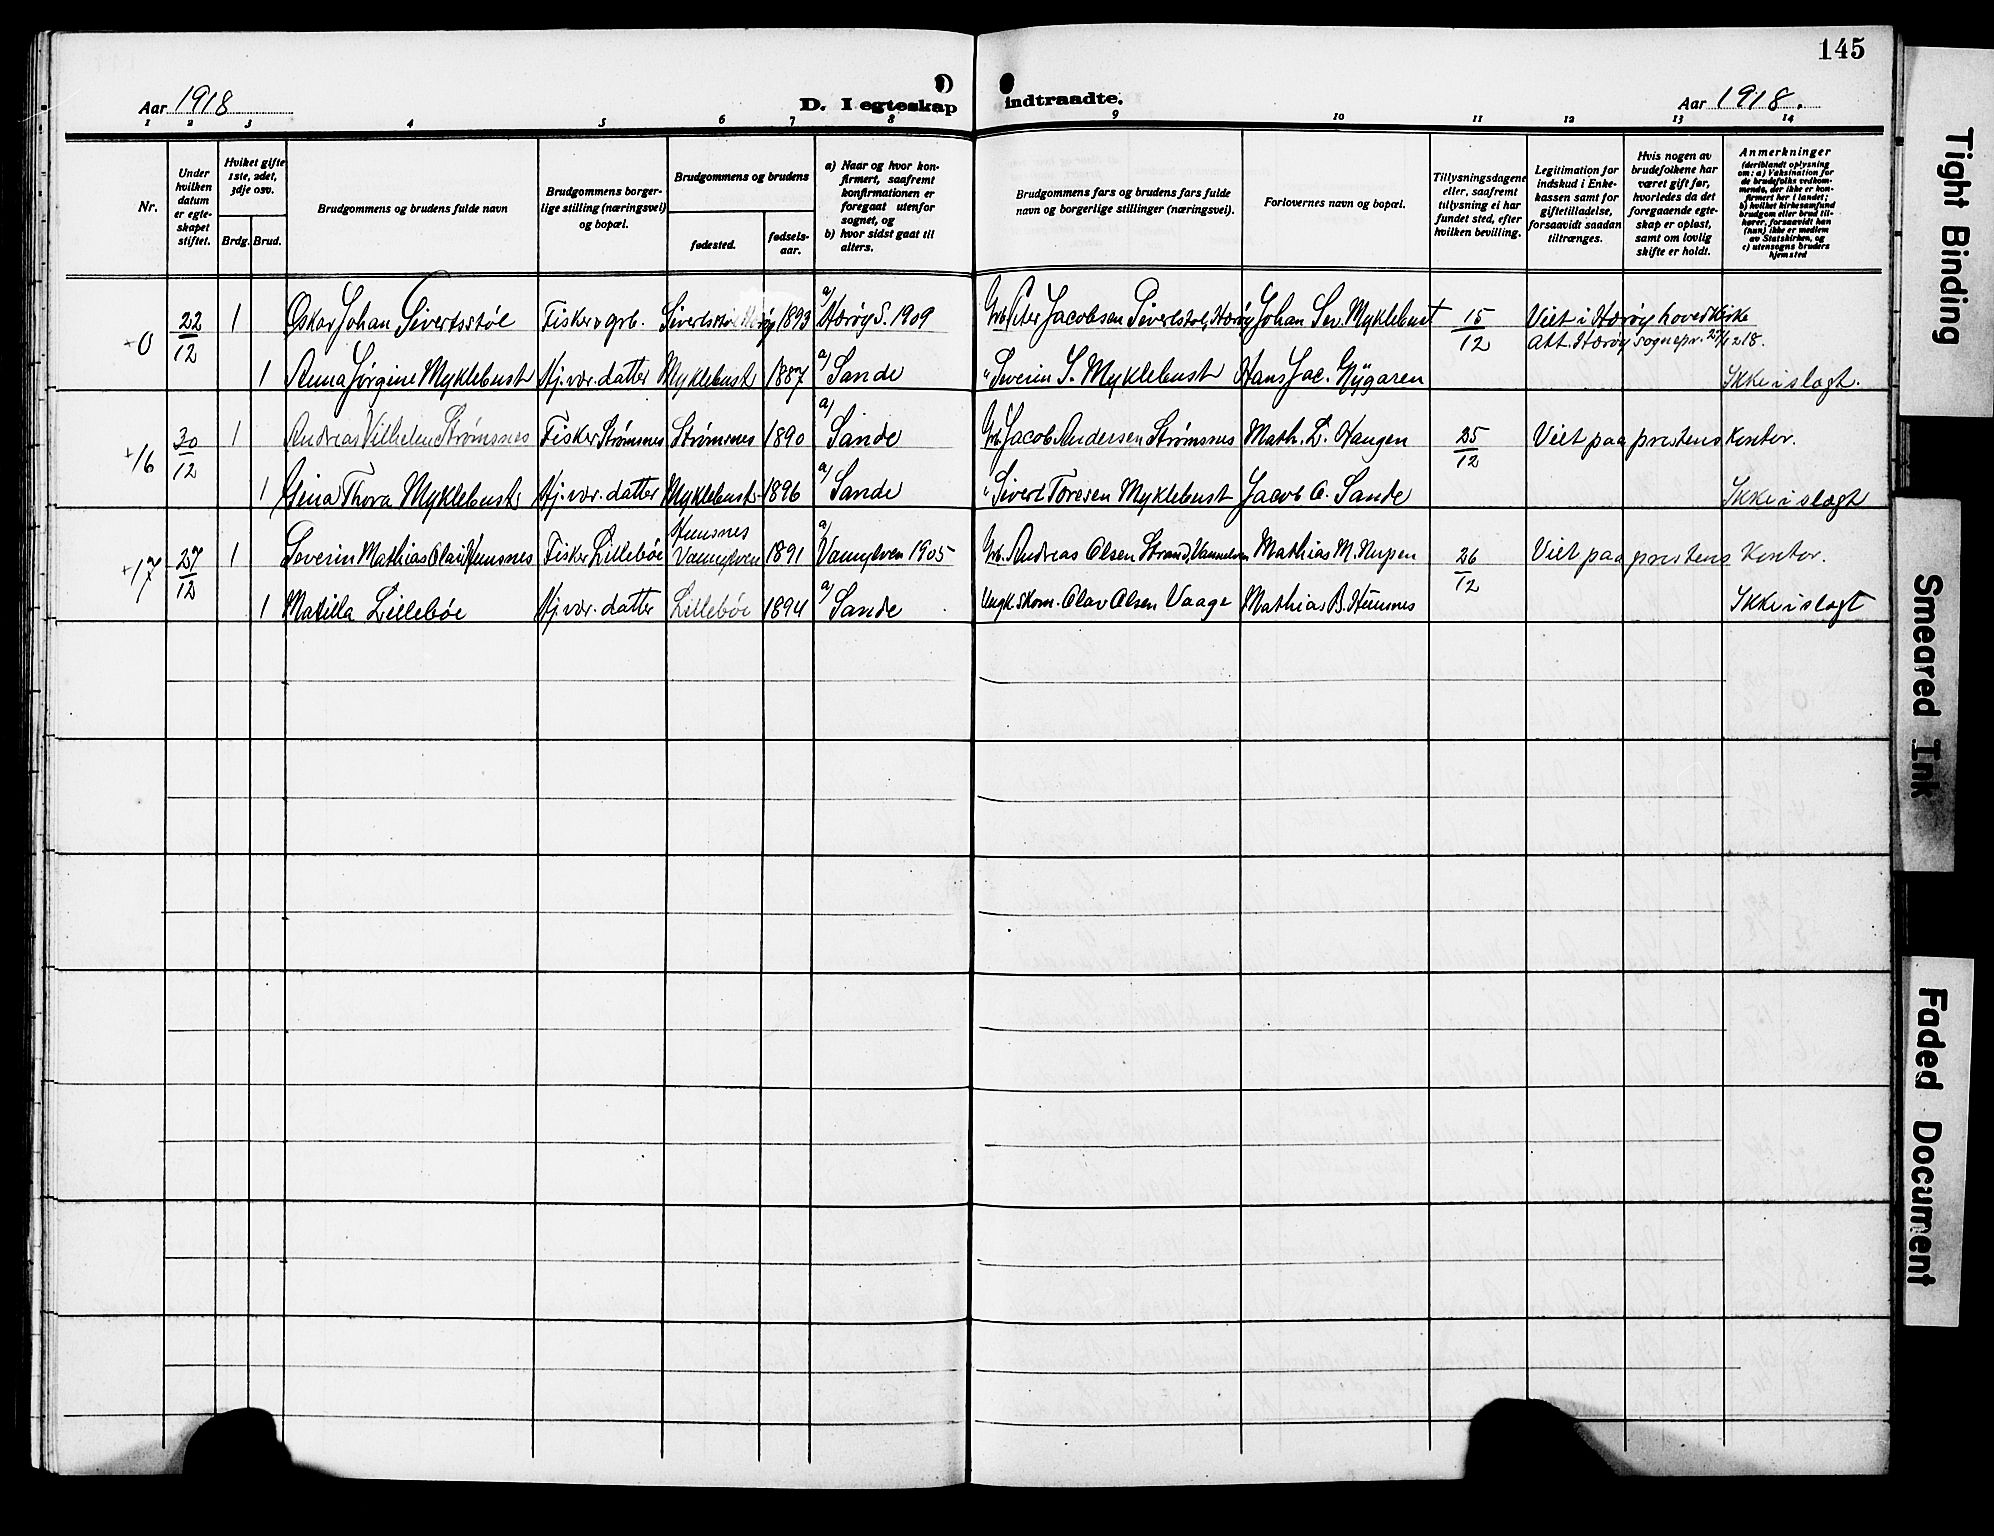 145
Aar 1918
D. I egteskap indtraadte.
Aar 1918.
1 2 3 4 5 6 7 8 9 10 11 12 13 14
Nr.
Under hvilken datum er egteskapet stiftet.
Hvilket gifte 1ste, 2det, 3dje osv.
Brdg. Brud.
Brudgommens og brudens fulde navn
Brudgommens borgerlige stilling (næringsvei) og bopæl.
Brudgommens og brudens
fødested.
fødselsaar.
a) Naar og hvor konfirmert, saafremt konfirmationen er foregaat utenfor sognet, og
b) hvor sidst gaat til alters.
Brudgommens fars og brudens fars fulde navn og borgerlige stillinger (næringsvei).
Forlovernes navn og bopæl.
Tillysningsdagene eller, saafremt tillysning ei har fundet sted, efter hvilken bevilling.
Legitimation for indskud i Enkekassen samt for giftetilladelse, forsaavidt saadan tiltrænges.
Hvis nogen av brudefolkene har været gift før, hvorledes da det foregaaende egteskap er opløst, samt om lovlig skifte er holdt.
Anmerkninger
(deriblandt oplysning om: a) Vaksination for de brudefolks vedkommende, der ikke er konfirmert her i landet; b) hvilket kirkesamfund brudgom eller brud tilhører, forsaavidt han (hun) ikke er medlem av Statskirken, og c) utensogns bruders hjemsted
+0 22/12 1 Oskar Johan Sivertsstøl Fisker grb. Sivertsstøl Herøy 1893 a/ Herøy S. 1909 Grb. Peter Jacobsen Sivertstøl, Herøy Johan Sev. Myklebust 15/12 Viet i Herøy hovedkirke
Att. Herøy sognepr. 27/12 18.
1 Anna Jørgine Myklebust Hj.vær. datter Myklebust 1887 a/ Sande " Severin S. Myklebust Hans Jac. Nygaren Ikke i slegt.
+16 30/12 1 Andreas Vilhelm Strømsnes Fisker Strømsnes Strømsnes 1890 a/ Sande Grb. Jacob Andersen Strømsnes Math. L. Haugen 25/12 Viet paa prestens kontor.
1 Gina Thora Myklebust Hj.vær. datter Myklebust 1896 a/ Sande " Sivert Toresen Myklebust Jacob A. Sande Ikke i slegt
+17 27/12 1 Severin Mathias Olai Humsnes Fisker Lillebøe Humsnes Vannylven 1891 a/ Vannylven 1905 Grb. Andreas Olsen Strand, Vannelven Mathias M. Nupen 26/12 Viet paa prestens kontor.
1 Matilla Lillebøe Hj.vær. datter Lillebøe 1894 a/ Sande Ungk. skom. Olav Olsen Vaage Mathias B. Humnes Ikke i slegt
Tight Binding
Smeared Ink
Faded Document